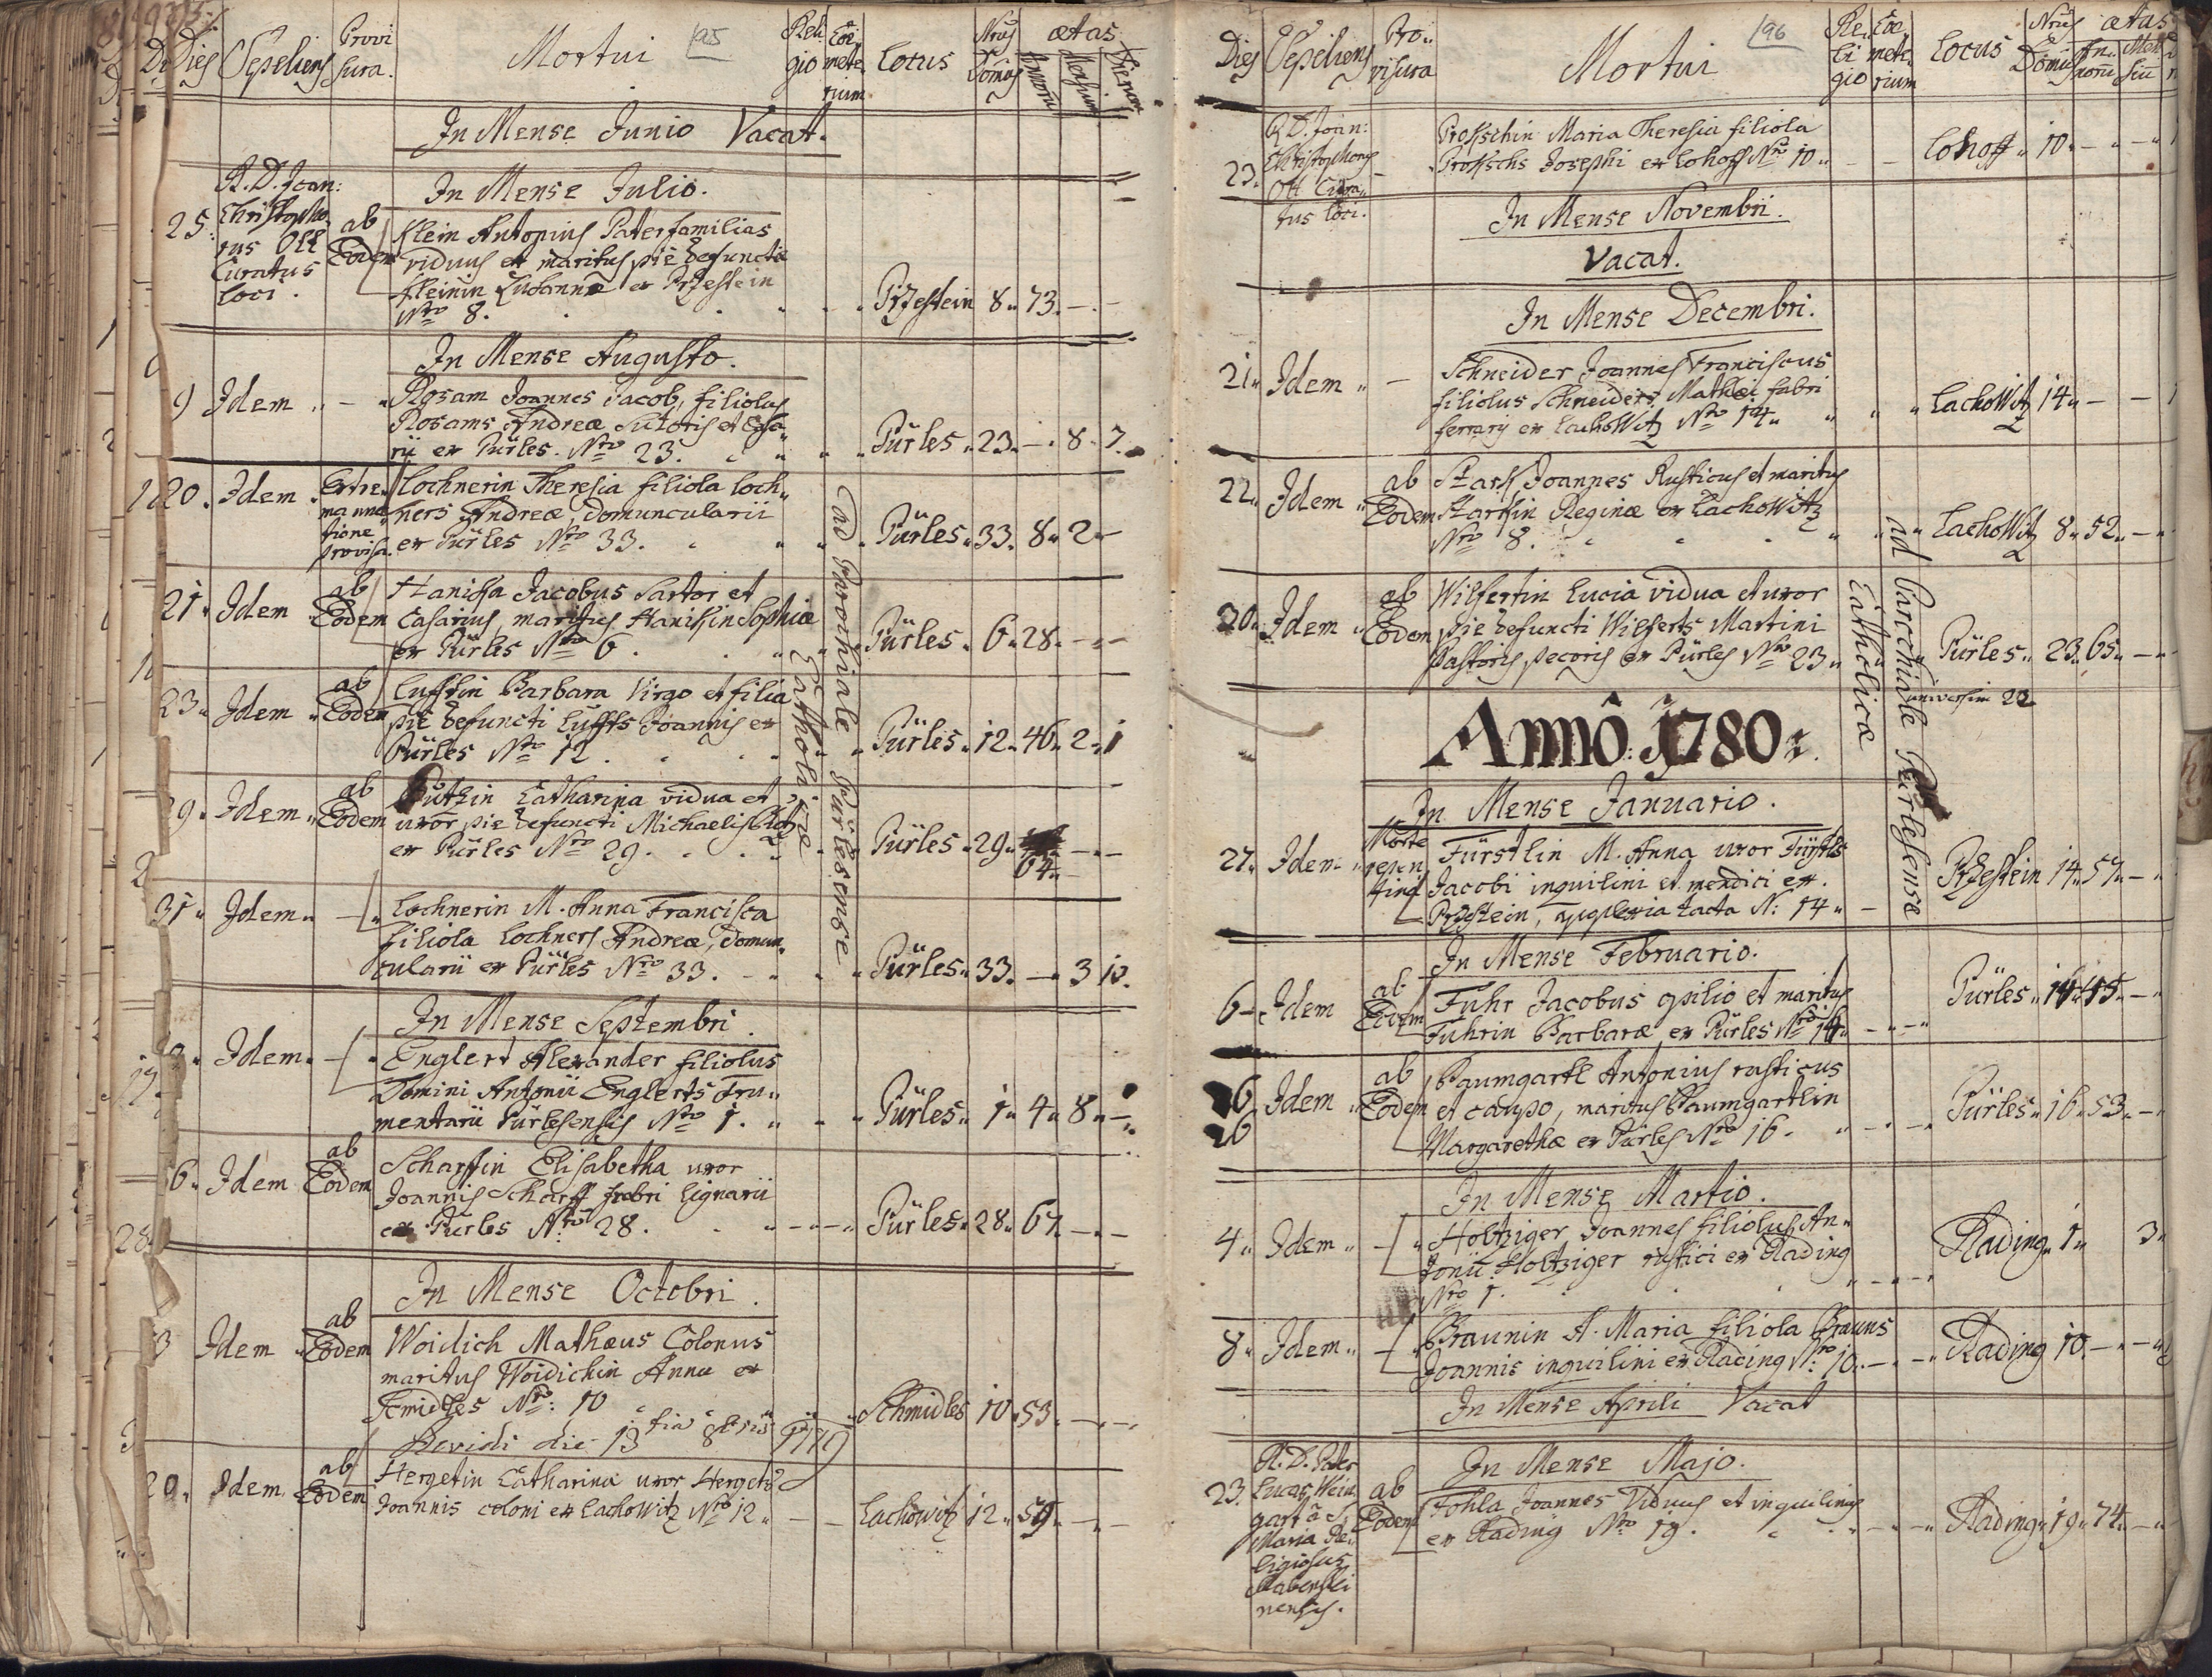 Dies Sepeliens Provi sura. Mortui 95 Reli gio Coe mete rium Locus Nrus Domus ætas Annorũ Mensium Dierum
In Mense Junio Vacat.
In Mense Julio.
25. R. D. Joan: Christopho rus Ott Curatus loci. ab Eodem
Klein Antonius Paterfamilias
viduus et maritus pie defunctæ
Kleinin Susannæ ex Przestein
Nro 8. Przestein 8. 73. - -
In Mense Augusto.
9 Idem - Rosam Joannes Jacob, filiolus
Rosams Andreæ Sutoris et Casa
rii ex Pürles. Nro 23. Pürles 23. - 8. 7.
20. Idem Extre ma unc tione provisa
Lochnerin Theresia filiola Loch
ners Andreæ, domuncularii
ex Pürles Nro 33. Pürles 33. 8. 2 -
21. Idem ab Eodem Hanisça Jacobus Sartor et
Casarius, maritus Hanikin Sophiæ
ex Pürles Nro 6. Pürles 6. 28. - -
23. Idem ab Eodem Lufftin Barbara Virgo et filia
pie defuncti Luffts Joannis ex
Pürles Nro 12. Pürles 12. 46. 2. 1
29. Idem ab Eodem Putzin Catharina vidua et
uxor pie defuncti Michaelis
ex Pürles Nro 29. Pürles 29. 64. - -
31. Idem - Lochnerin M. Anna Francisca
filiola Lochners Andreæ, domun
cularii ex Pürles Nro 33. Pürles 33. - 3 10.
ad Parochiale Pürlesense
Catholicæ
In Mense Septembri.
Idem - Englert Alexander filiolus
Domini Antonii Englerts Fru
mentarii Pürlesensis Nro 1. Pürles 1. 4. 8. -
6. Idem ab Eodem Scharffin Elisabetha uxor
Joannis Scharff fabri lignarii
ex Pürles Nro 28. Pürles 28. 67. - -
In Mense Octobri.
3 Idem ab Eodem Woidich Mathæus Colonus
maritus Woidichin Annæ ex
Schmidles Nro: 10 Schmidles 10. 53. - -
Revidi die 13 1779
20. Idem ab Eodem Hergetin Catharina uxor Hergets
Joannis coloni ex Lachowitz Nro 12. Lachowitz 12. 59. - -
Dies Sepeliens Pro visura Mortui 96 Re li gio Coe mete rium Locus Nrus Domũs ætas An norũ Men siũ
23. R. D. Joan: Christophorus Ott Cura tus loci.
Prokschin Maria Theresia filiola
Prokschs Josephi ex Lohoff Nro 10. Lohoff 10. - -
In Mense Novembri.
Vacat.
In Mense Decembri.
21. Idem - Schneider Joannes Franciscus
filiolus Schneiders Mathæi fabri
ferrarij ex Lachowitz Nro 14. Lachowitz 14. - -
22. Idem ab Eodem Stark Joannes Rusticus et maritus
Starkin Reginæ ex Lachowitz
Nro 8. Lachowitz 8. 52. -
30. Idem ab Eodem Wilfertin Lucia vidua et uxor
pie defuncti Wilferts Martini
Pastoris pecoris ex Pürles Nro 23. Pürles 23. 65. -
universim 22
ad Parochiale Pürlesense
Catholicæ
Annô: 1780.
In Mense Januario.
27. Idem Morte repen tina Fürstlin M. Anna uxor Fürstls
Jacobi inquilini et mendici ex
Przestein, apoplexia tacta N: 14. Przestein 14. 57. -
In Mense Februario.
6 - Idem ab Eodem Fuhr Jacobus opilio et maritus
Fuhrin Barbaræ ex Pürles Nro 14. Pürles 14. 45. -
26 Idem ab Eodem Baumgartl Antonius rusticus
et caupo, maritus Baumgartlin
Margarethæ ex Pürles Nro 16. Pürles 16. 53. -
In Mense Martio.
4. Idem - Holtziger Joannes filiolus An
tonii Holtziger rustici ex Rading
Nro 1. Rading 1. 3.
8. Idem - Braunin A. Maria filiola Brauns
Joannis inquilini ex Rading Nro: 10. Rading 10. - -
In Mense Aprili Vacat
In Mense Majo.
23. R. D. Pater Lucas Wein gart â S. Maria Re ligiosus Rabenstei nensis. ab Eodem
Fohla Joannes Viduus et inquilinus
ex Rading Nro 19. Rading 19. 74. -